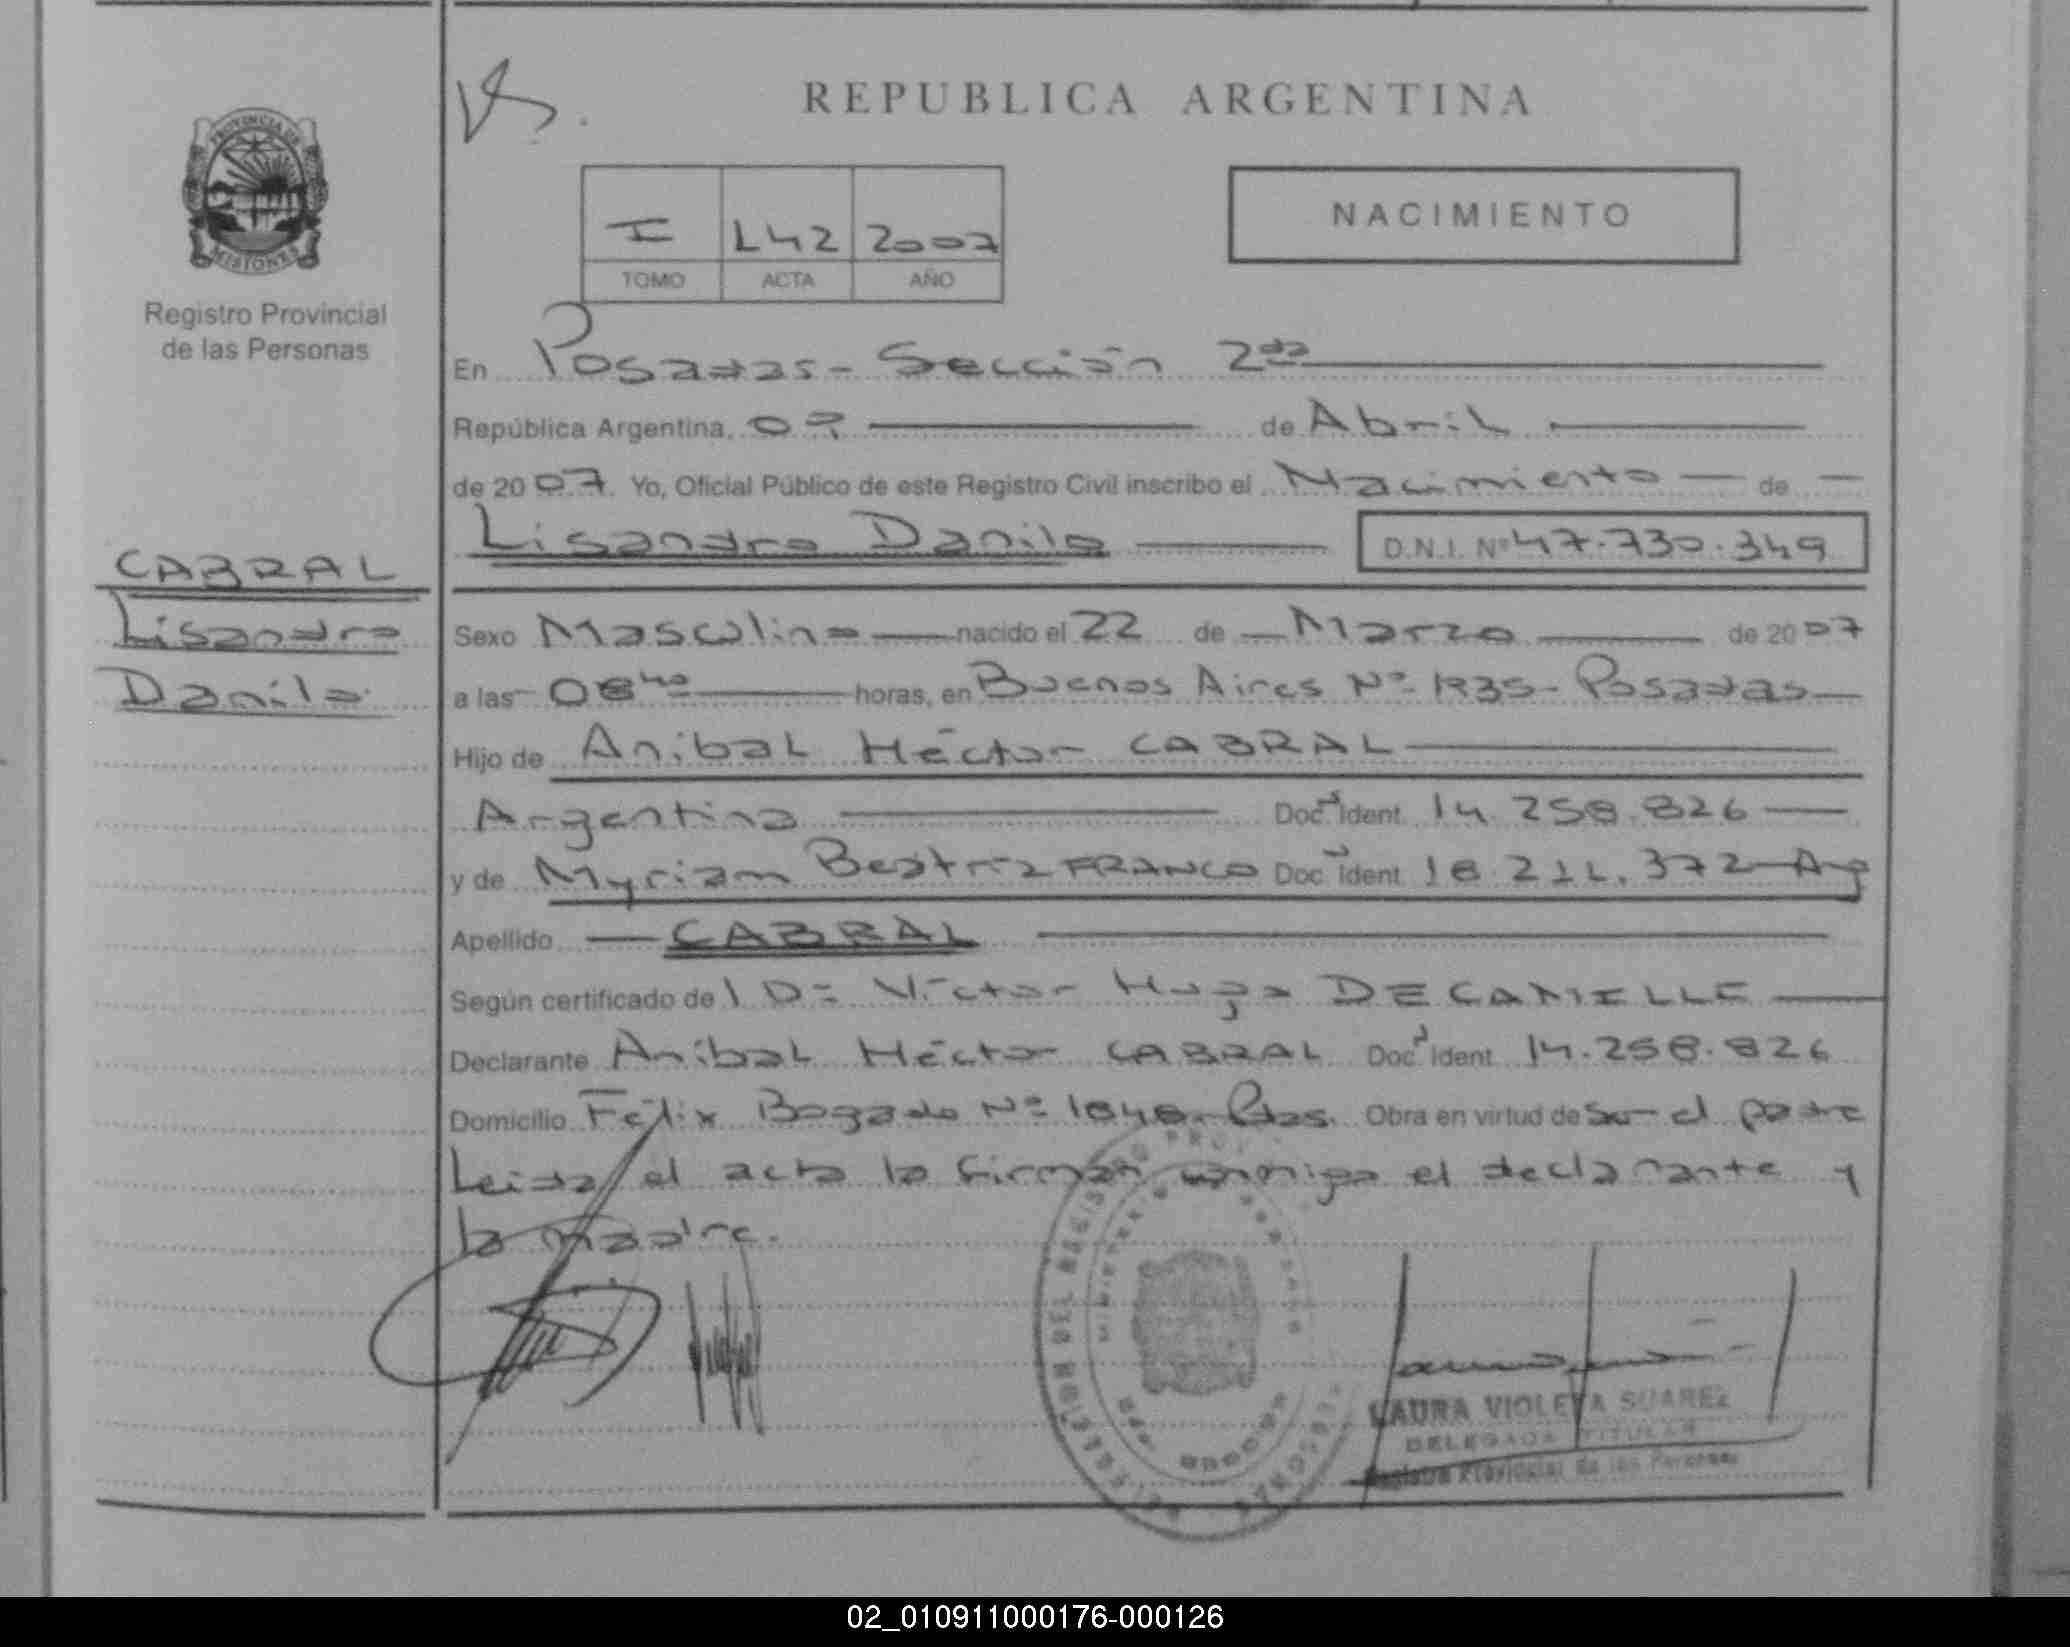 REPUBLICA ARGENTINA
PROVINCIA DE
MISIONES
Registro Provincial
de las Personas
I L42 2007
TOMO ACTA AÑO
NACIMIENTO
En Posadas - Sección 2da
República Argentina, 09 de Abril
de 2007. Yo, Oficial Público de este Registro Civil inscribo el Nacimiento de
Lisandro Danilo D.N.I. Nº 47.730.349
CABRAL
Lisandro
Danilo
Sexo Masculino nacido el 22 de Marzo de 2007
a las 08 40 horas, en Buenos Aires Nº 1935 - Posadas
Hijo de Aníbal Héctor CABRAL
Argentina Doc Ident. 14.258.826
y de Myriam Beatriz FRANCO Doc Ident. 18.211.372 Arg
Apellido CABRAL
Según certificado de ID= Víctor Hugo DECAMIELLE
Declarante Aníbal Héctor CABRAL Doc Ident. 14.258.826
Domicilio Félix Bogado Nº 1848. Pdas. Obra en virtud de ser el padre
Leida el acta la firman conmigo el declarante y
la madre.
LAURA VIOLETA SUAREZ
DELEGADA TITULAR
Registro Provincial de las Personas
02_010911000176-000126